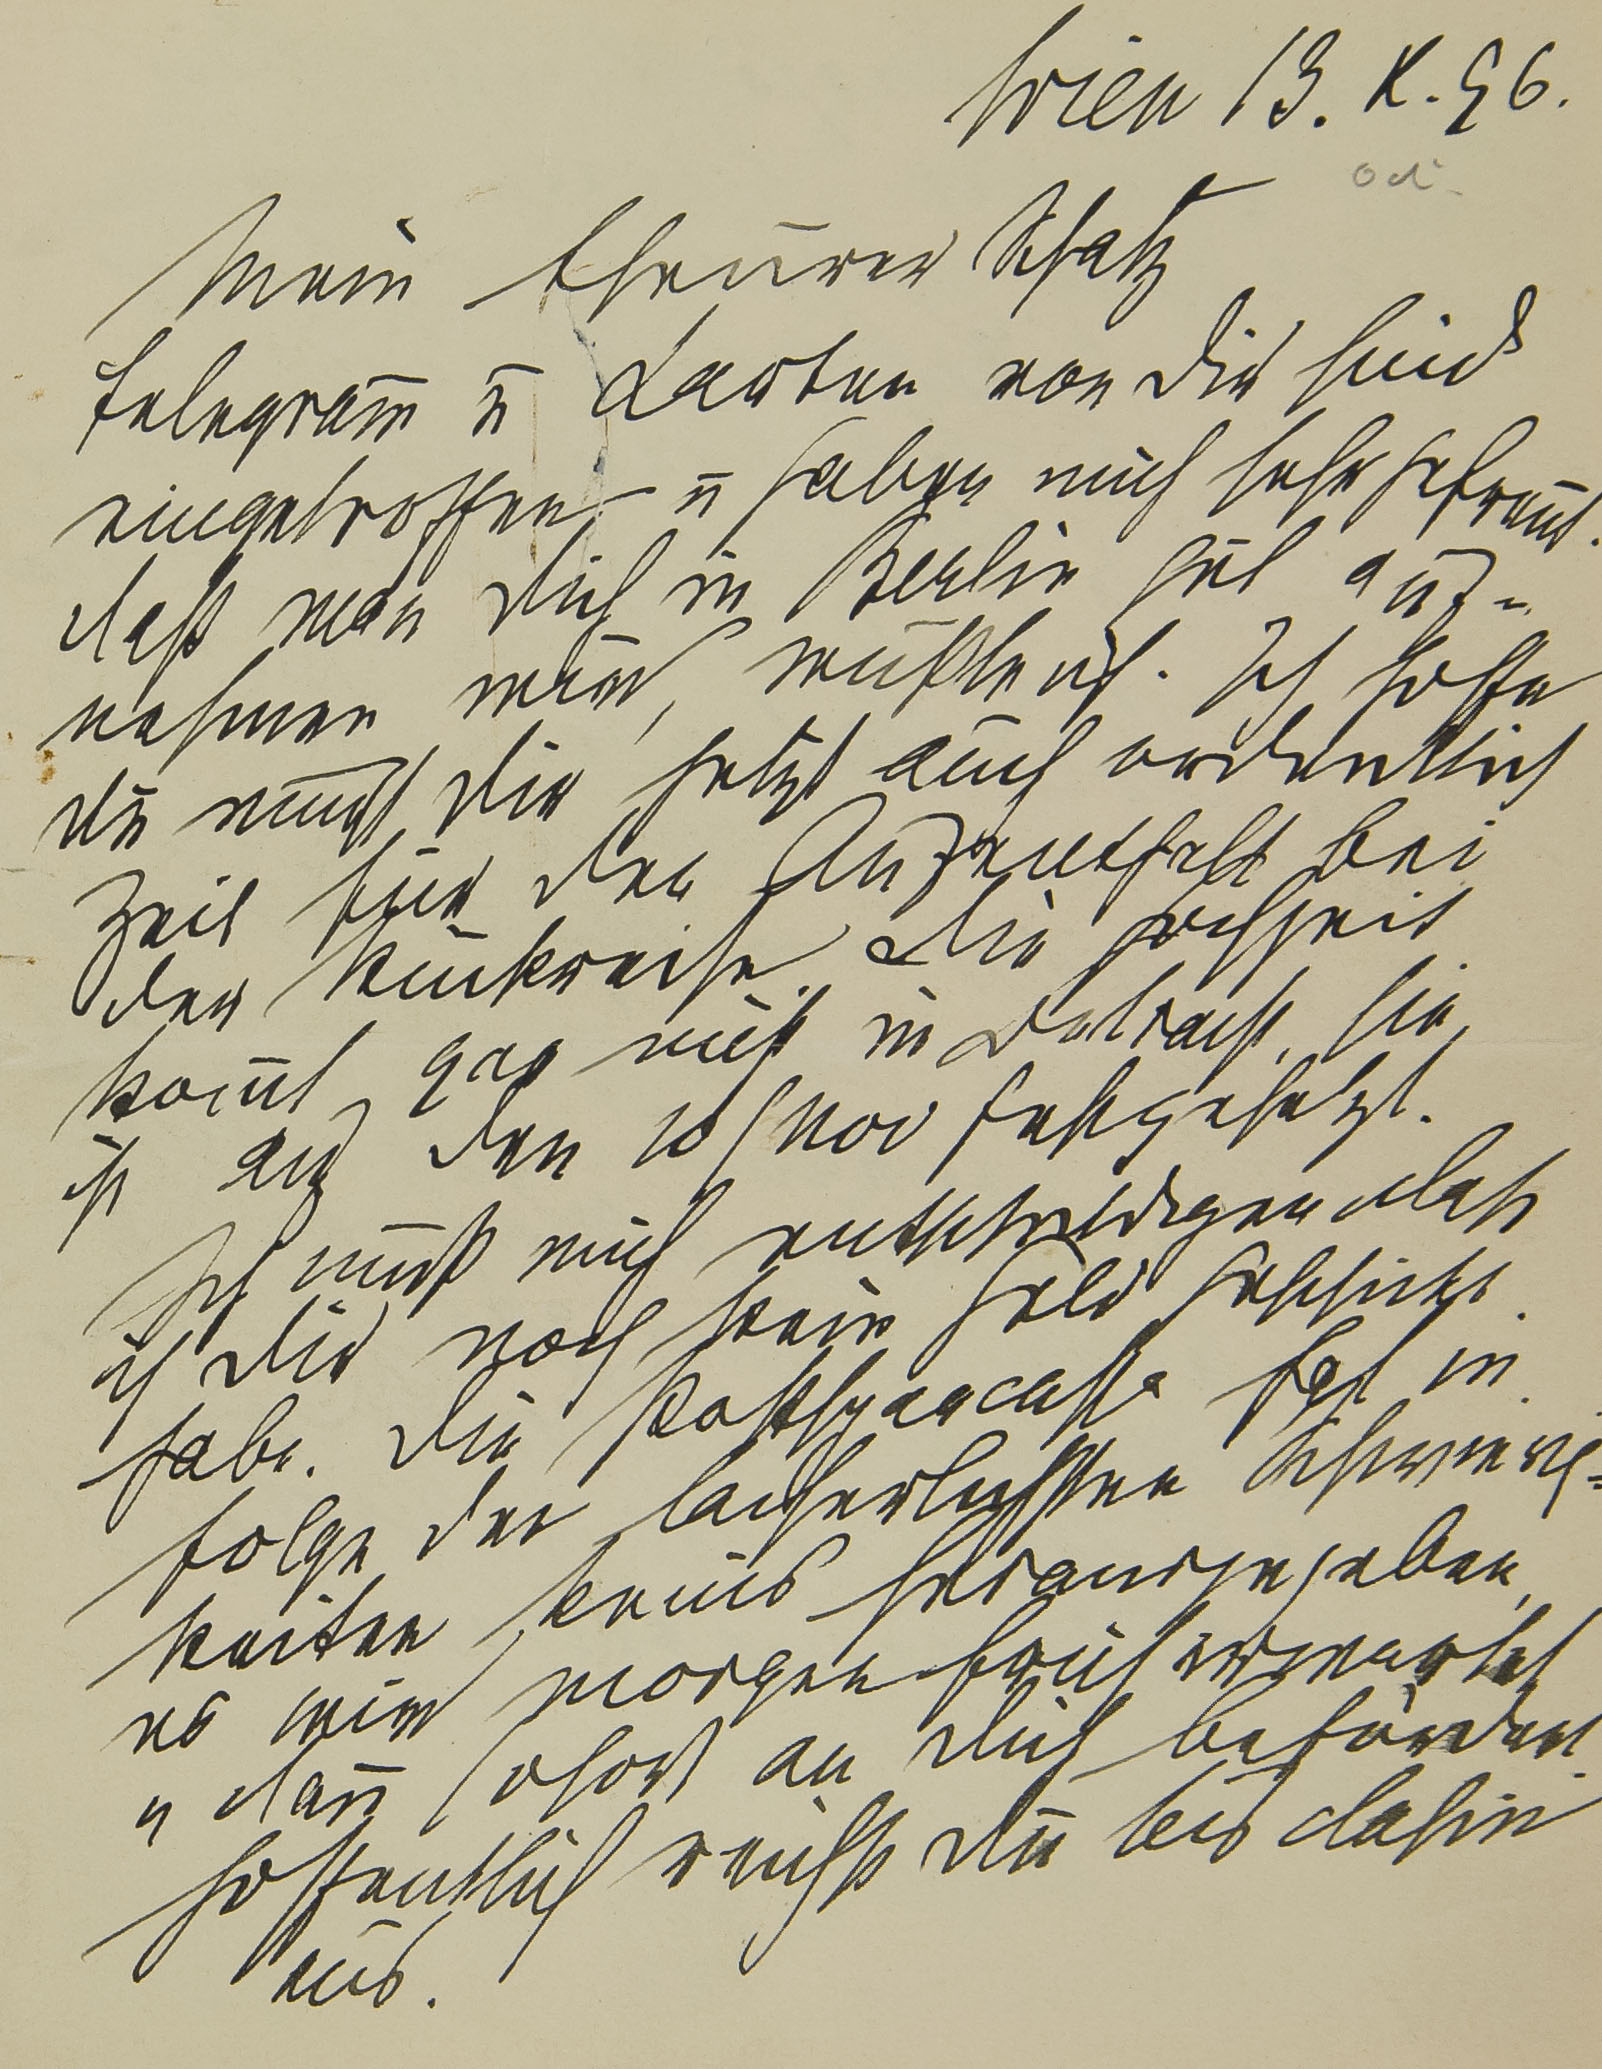 Wien 13. X. 96.
Oct.
Mein theurer Schatz
Telegram̅ u Karten von dir sind
eingetroffen u haben mich sehr gefreut.
daß man dich in Berlin gut auf-
nehmen wird, wußte ich. Ich hoffe
du nim̅st dir jetzt auch ordentlich
Zeit für den Aufenthalt bei
der Rückreise. Die Hochzeit
kom̅t gar nicht in Betracht, sie
ist auf den 10 Nov festgesetzt.
Ich muß mich entschuldigen daß
ich dir noch kein Geld geschickt
habe. Die Postsparcasse hat in
folge der lächerlichsten Schwierig-
keiten keins herausgegeben,
es wird morgen früh erwartet
u dan̅ sofort an dich befördert.
Hoffentlich reichst du bis dahin
aus.